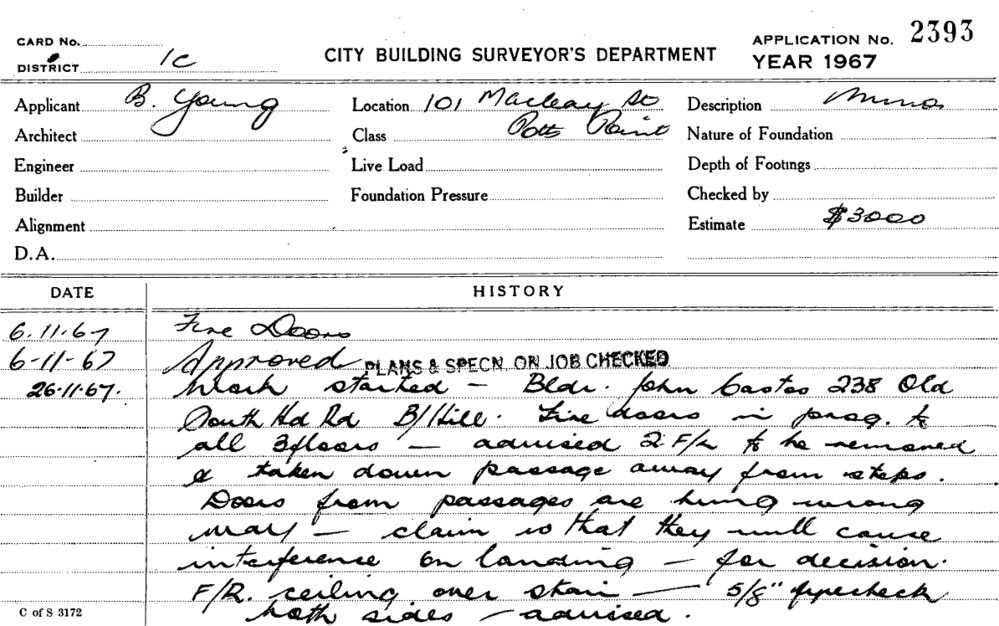 CARD No.
DISTRICT 1C
CITY BUILDING SURVEYOR'S DEPARTMENT
APPLICATION No. 2393
YEAR 1967
Applicant B. Young
Location 101 Macleay St
Description Minor
Architect
Class Potts Point
Nature of Foundation
Engineer
Live Load
Depth of Footings
Builder
Foundation Pressure
Checked by
Alignment
Estimate $3000
D.A.
DATE HISTORY
6.11.67 Fire Doors
6-11-67 Approved PLANS & SPECN. ON JOB CHECKED
26.11.67. Work started - Bldr. John Castos 238 Old
South Hd Rd B/Hill. Fire doors in prog. to
all 3 floors - advised 2 F/L to be removed
& taken down passage away from steps.
Doors from passages are hung wrong
way - claim is that they will cause
interference on landing - for decision.
F/R. ceiling over stair - 5/8" fyrecheck
both sides - advised.
C of S 3172